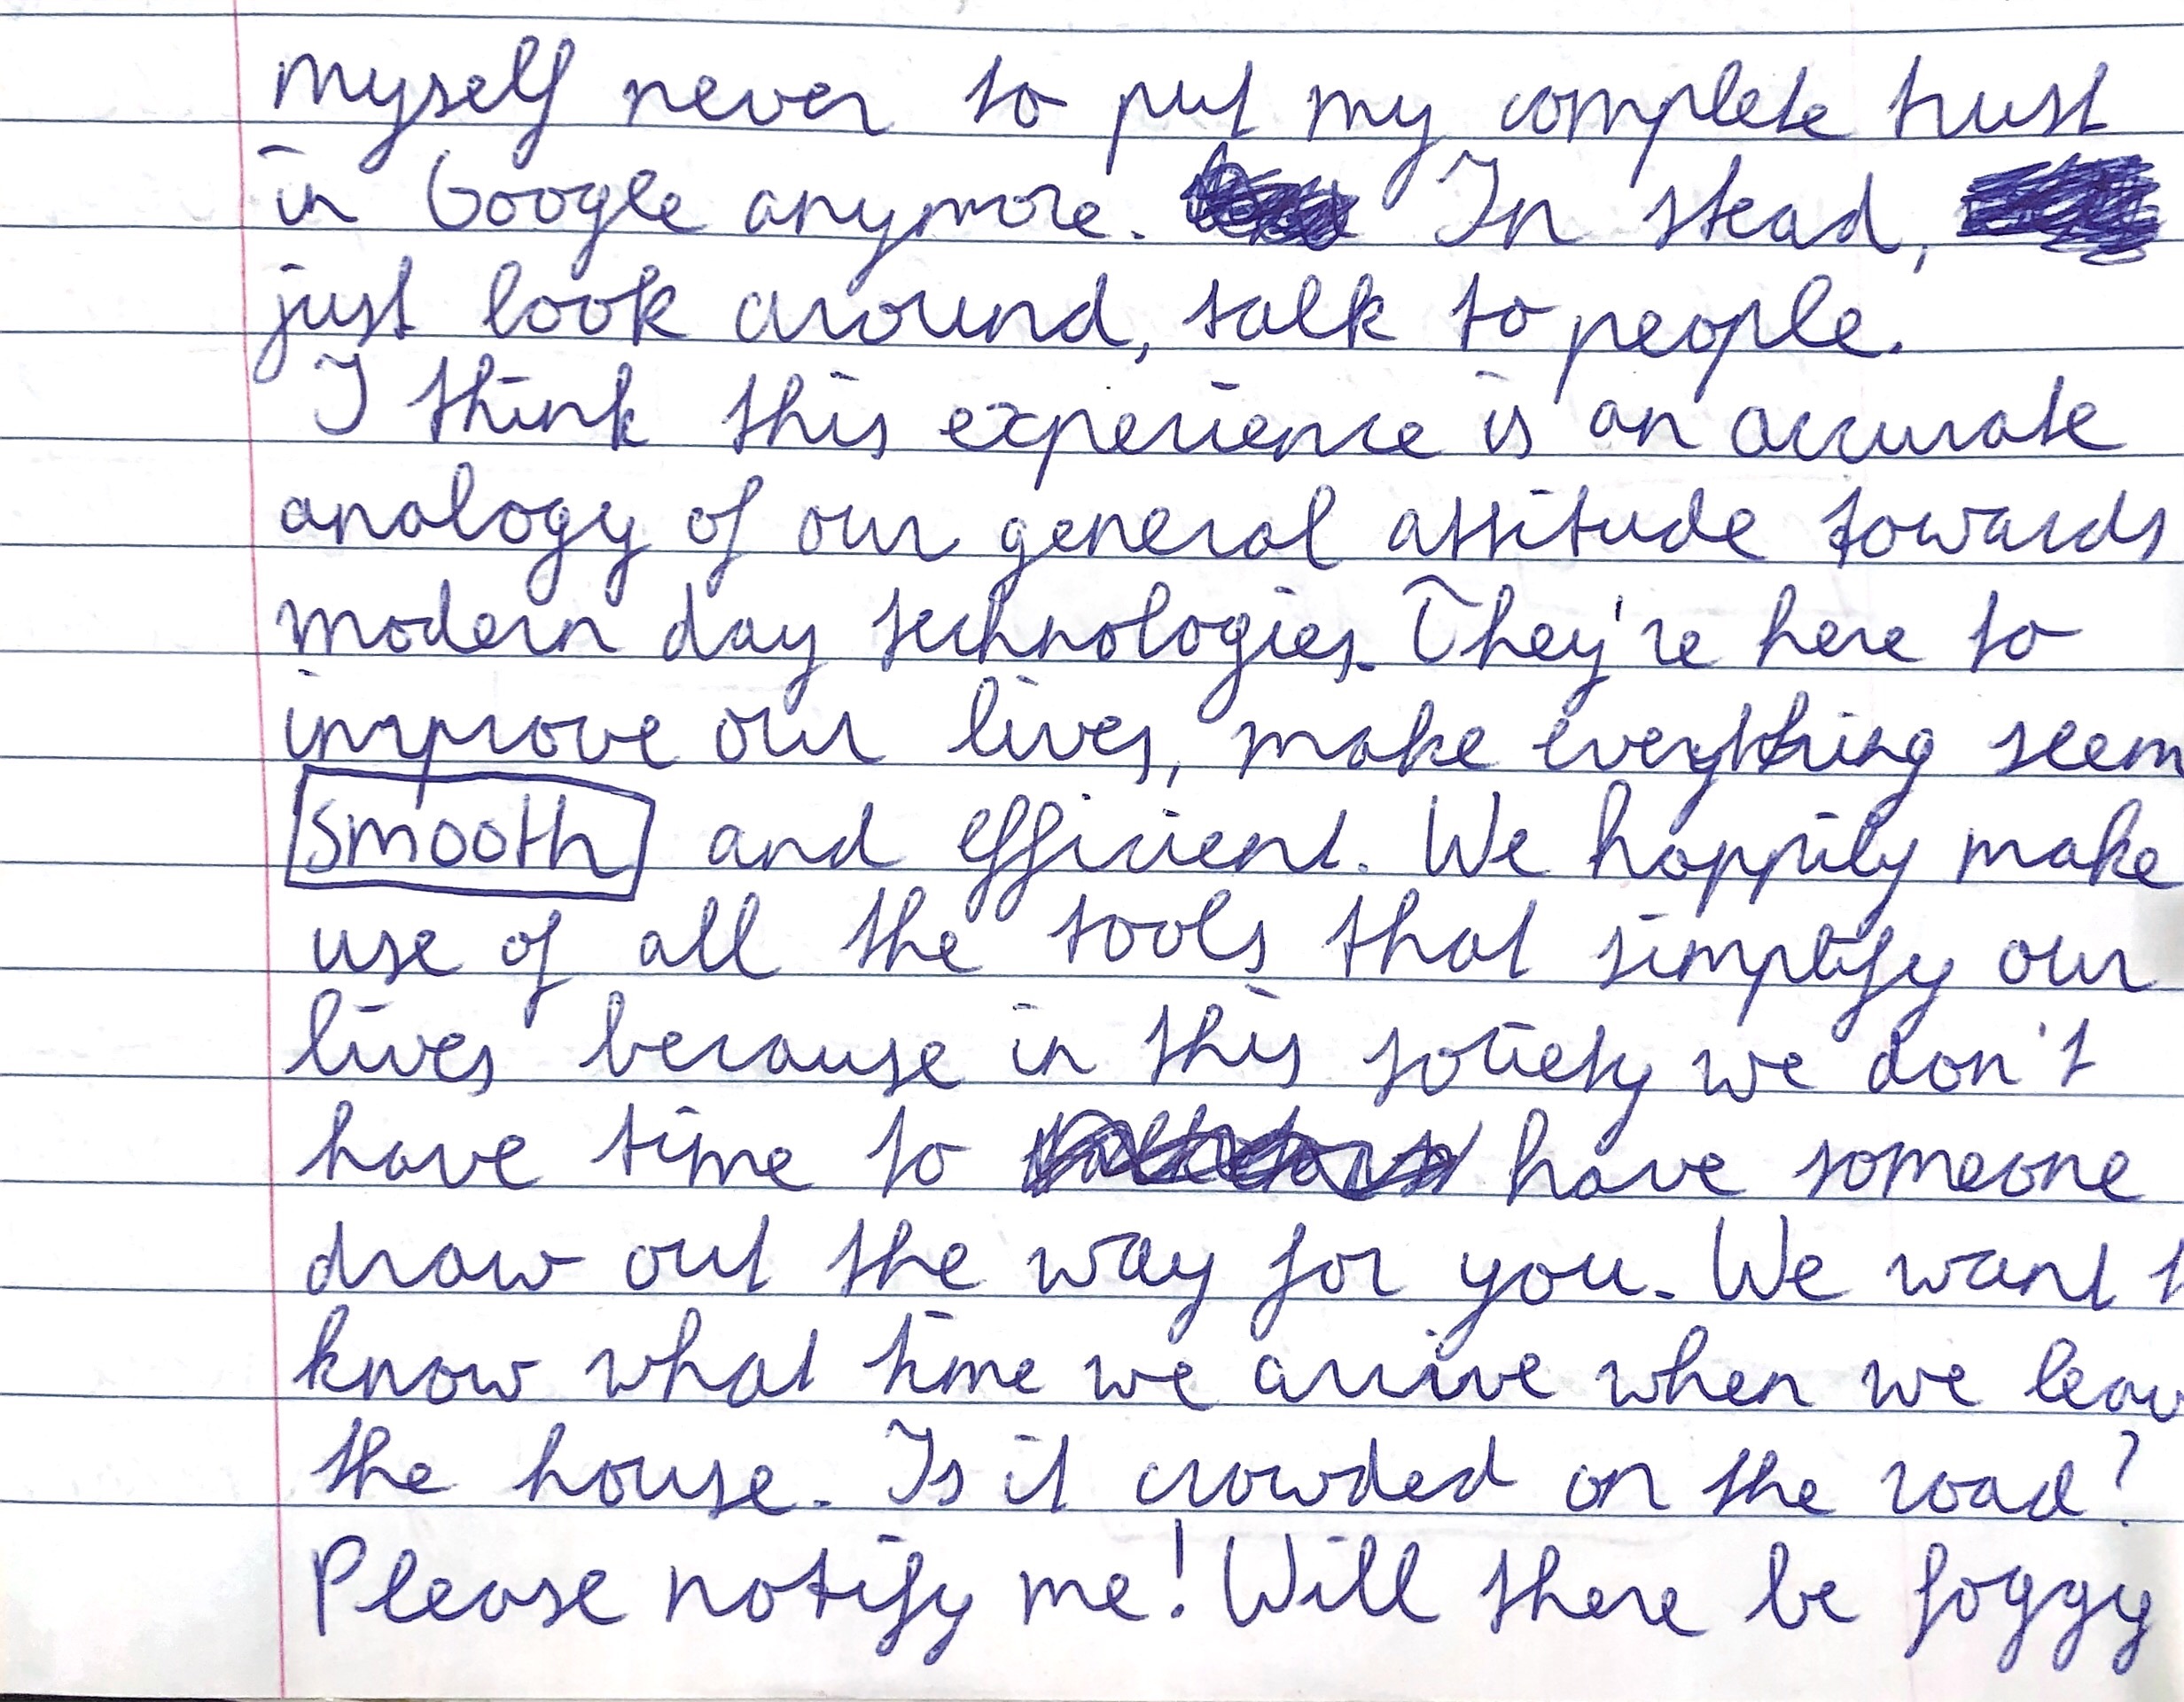 myself never to put my complete trust
in Google anymore. In stead,
just look around, talk to people.
I think this experience is an accurate
analogy of our general attitude towards
modern day technologies. They're here to
improve our lives, make everything seem
smooth and efficient. We happily make
use of all the tools that simplify our
lives because in this society we don't
have time to have someone
draw out the way for you. We want t
know what time we arrive when we leav
the house. Is it crowded on the road?
Please notify me! Will there be foggy